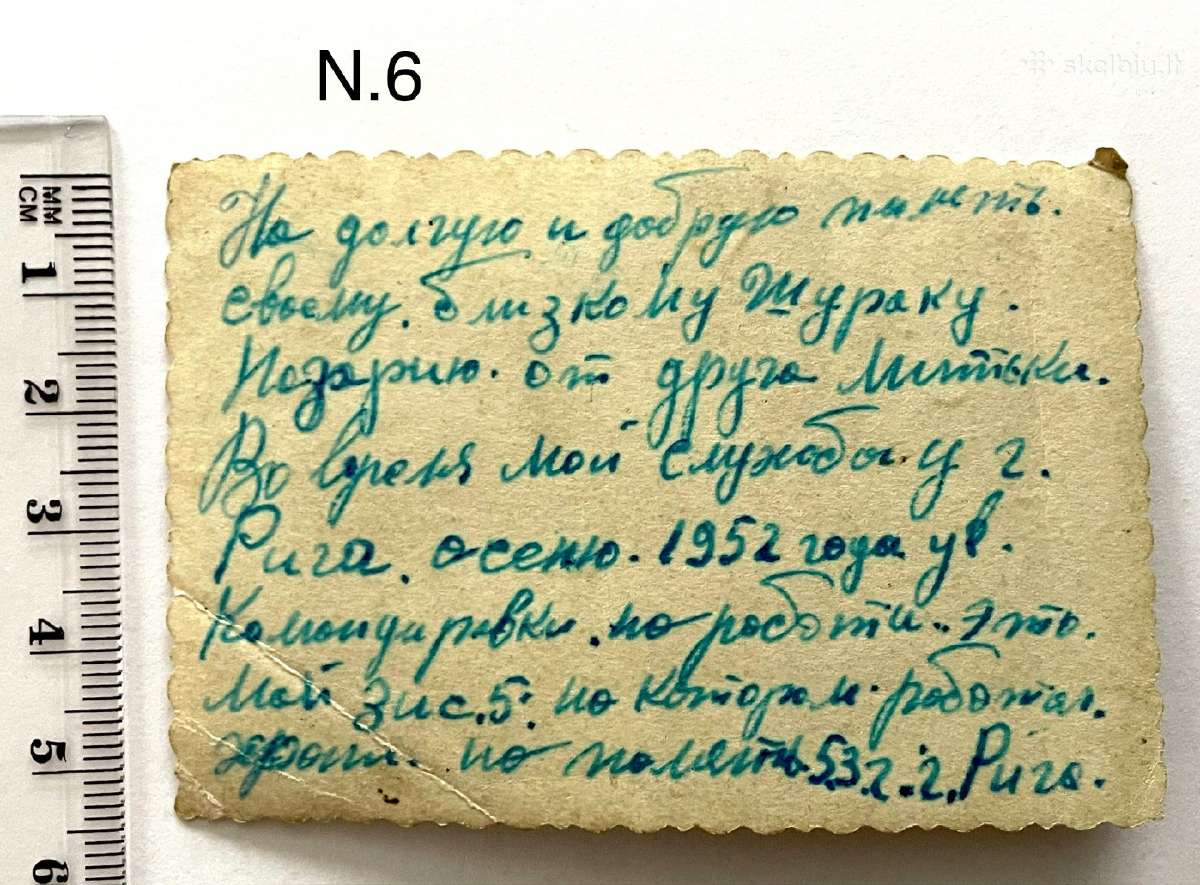 N.6
skelbiu.lt
MM
CM
1
2
3
4
5
6
На долгую и добрую паметь.
своему. близкому Шураку.
Назарию. от друга Митьки.
Во время мой службы. у г.
Рига. осеню. 1952 года ув.
Командировки. на работи.. Это.
мой зис.5. на котором. работал.
храни. на паметь. 53.г. г. Рига.